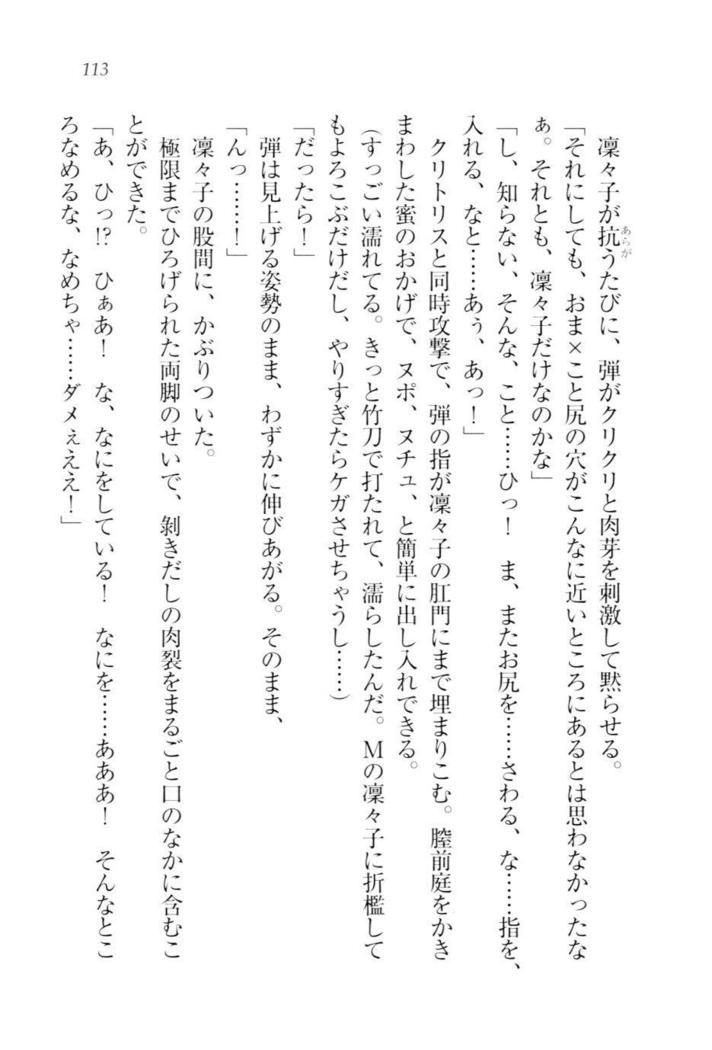 113
凛々子が抗うたびに、弾がクリクリと肉芽を刺激して黙らせる。
あらが
「それにしても、おま×こと尻の穴がこんなに近いところにあるとは思わなかったな
ぁ。それとも、凛々子だけなのかな」
「し、知らない、そんな、こと……ひっ！　ま、またお尻を……さわる、な……指を、
入れる、なと……あぅ、あっ！」
クリトリスと同時攻撃で、弾の指が凛々子の肛門にまで埋まりこむ。膣前庭をかき
まわした蜜のおかげで、ヌポ、ヌチュ、と簡単に出し入れできる。
（すっごい濡れてる。きっと竹刀で打たれて、濡らしたんだ。Ｍの凛々子に折檻して
もよろこぶだけだし、やりすぎたらケガさせちゃうし……）
「だったら！」
弾は見上げる姿勢のまま、わずかに伸びあがる。そのまま、
「んっ……！」
凛々子の股間に、かぶりついた。
極限までひろげられた両脚のせいで、剝きだしの肉裂をまるごと口のなかに含むこ
とができた。
「あ、ひっ!?　ひぁあ！　な、なにをしている！　なにを……あああ！　そんなとこ
ろなめるな、なめちゃ……ダメぇええ！」